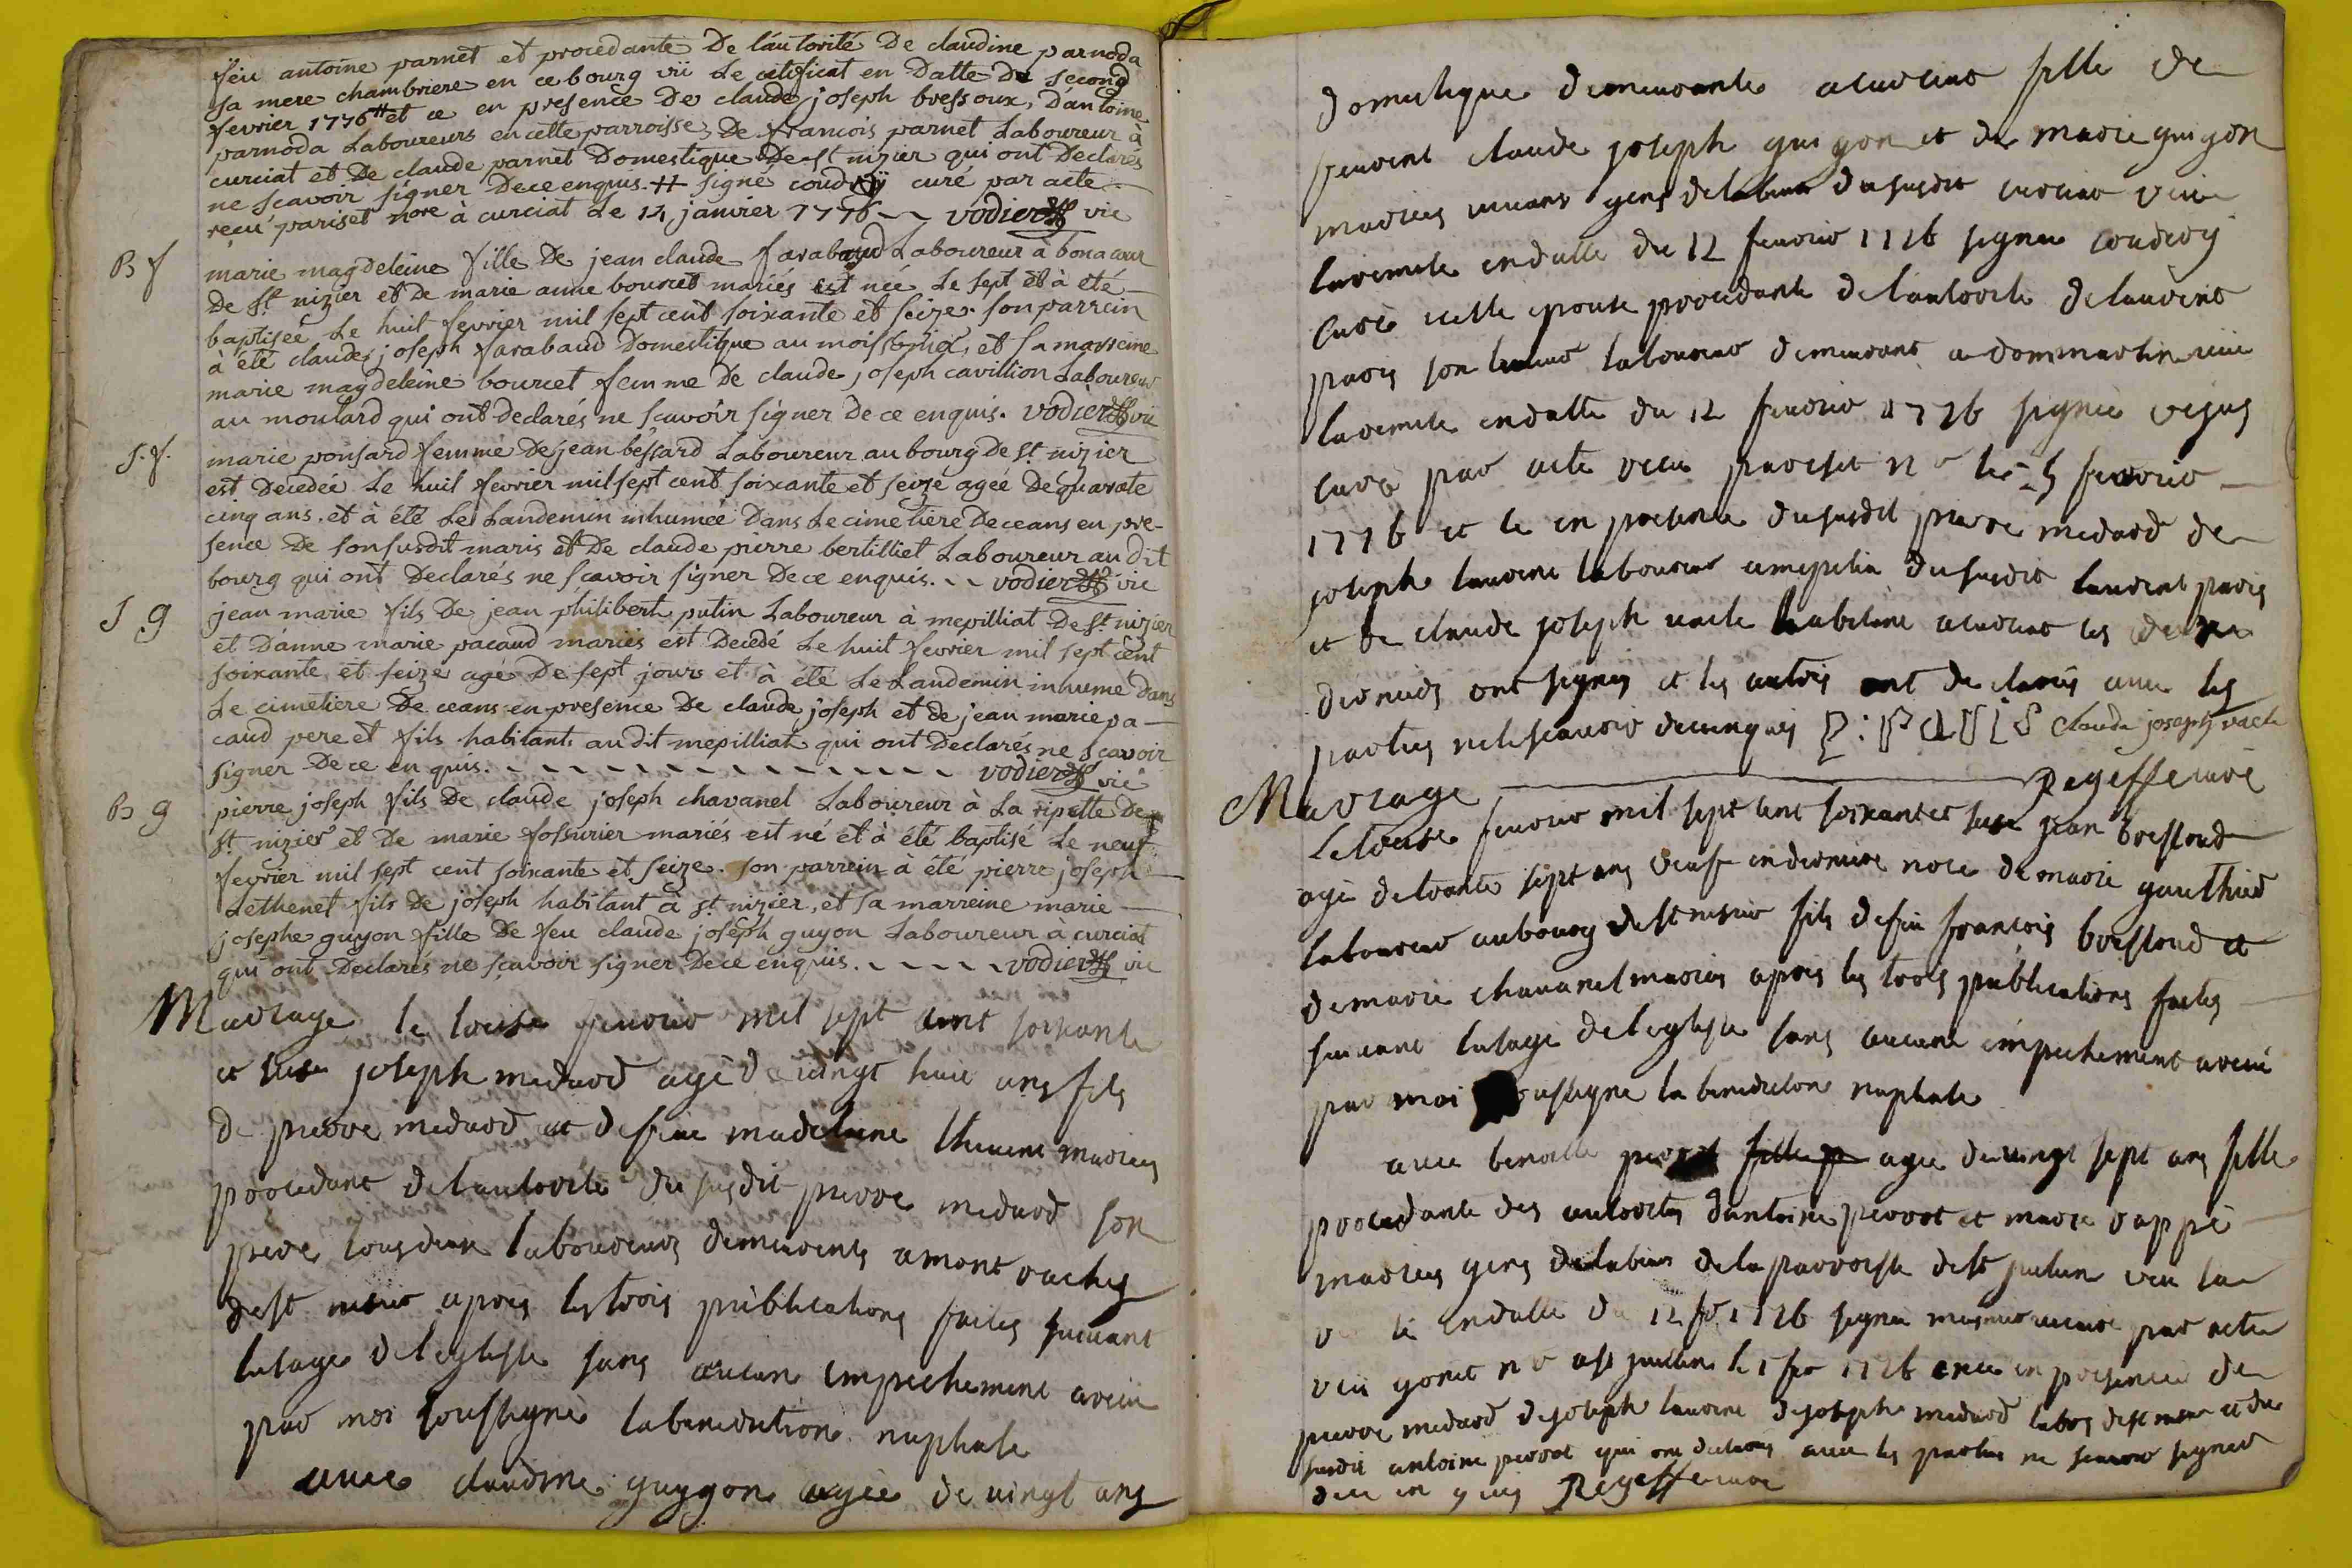 feu antoine parnet et procedante De l'autorité De claudine parnoda
sa mere chambriere en ce bourg vü Le certificat en Datte De second
fevrier 1776 # et ce en presence De claude joseph bressoux, D'antoine
parnoda Laboureurs en cette parroisse, De francois parnet Laboureur à
curciat et De claude parnet Domestique De st nizier qui ont Declarés
ne scavoir signer De ce enquis. # signé coudroÿ curé par acte
reçu pariset nore à curciat Le 14 janvier 1776 vodier vic
B f
marie magdeleine fille De jean claude farabaud Laboureur à bona cour
De St. nizier et de marie anne bourcet mariés est née Le sept et à été
baptisée Le huit fevrier mil sept cent soixante et seize. son parrein
à été claude joseph farabaud Domestique au et sa marreine
marie magdeleine bourcet femme De claude joseph cavillion Laboureur
au moulard qui ont declarés ne scavoir signer De ce enquis. vodier vic
S. f.
marie ponsard femme De jean bessard Laboureur au bourg De St. nizier
est Decedée Le huit fevrier mil sept cent soixante et seize agée De quarate
cinq ans. et à été Le Landemin inhumée Dans Le cimetiere De ceans en pre-
sence De son susdit maris et De claude pierre bertilliet Laboureur au dit
bourg qui ont Declarés ne scavoir signer De ce enquis. vodier vic
S g
jean marie fils De jean philibert putin Laboureur à mepilliat De St. nizier
et D'anne marie pacaud mariés est Decedé Le huit fevrier mil sept cent
soixante et seize agé De sept jours et à été Le Landemin inhumé dans
Le cimetiere De ceans en presence De claude joseph et de jean marie pa-
caud pere et fils habitants au dit mepilliat qui ont Declarés ne scavoir
signer De ce enquis. vodier vic
B g
pierre joseph fils De claude joseph chavanel Laboureur à La ripette De
St. nizier et De marie fossurier mariés est né et à été baptisé Le neuf
fevrier mil sept cent soixante et seize. son parrein à été pierre joseph
Lethenet fils De joseph habitant à St. nizier, et sa marreine marie
josephe guyon fille De feu claude joseph guyon Laboureur à curciat
qui ont Declarés ne scavoir signer De ce enquis. vodier vic
Mariage le treise fevrier mil sept cent soixante
et seise joseph medard agé de vingt huit ans fils
de pierre medard et de feue madeleine thevent mariés
procedant de l'autorité du susdit pierre medard son
pere tous deux laboureurs demeurents a mont vaches
de st nisier apres les trois publications faites suivant
l'usage de l'eglise sans aucun empechement a recu
par moi soussigné la benediction nuptiale
avec claudine guygon agée de vingt ans
domestique demeurante a curciat fille de
vivent claude joseph guigon et de marie guigon
mariés vivans gens de labeur du susdit curciat veu
la remise en datte du 12 fevrier 1776 signée coudroy
curé icelle epouse procedante de l'autorité de laurent
paris son laboureur demeurant a dommartin veu
la remise en datte du 12 fevrier 1776 signée
curé par acte recu pariset nre le 5 fevrier
1776 et ce en presence du susdit pierre medard de
joseph laurent laboureur du susdit laurent paris
et de claude joseph vacle habitant a curciat les deux
derniers ont signés et les autres ont declarés avec les
parties ne le scavoir de ce enquis P: PARIS claude joseph vacle
Regeffe curé
Mariage
Le treise fevrier mil sept cent soixante et seise jean bressoud
agé de trante sept ans veuf en derniere noce de marie gauthier
laboureur au bourg de st nisier fils de feu francois bressoud et
de marie chavanel mariés apres les trois publications faites
suivant l'usage de l'eglise sans aucun empechement a recu
par moi soussigné la benediction nuptiale
avec benoite perrot agée de vingt sept ans fille
procedante des autorités d'antoine perrot et marie rappe
mariés gens de labeur de la parroisse de st julien veu la
en datte du 12 fr 1776 signée par acte
recu gonet nre a st jullien le 5 fer 1776 et ce en presence de
pierre medard de joseph laurent de joseph medard labrs de st nisier et du
susdit antoine perrot qui ont declarés avec les parties ne scavoir signer
de ce enquis Regeffe curé